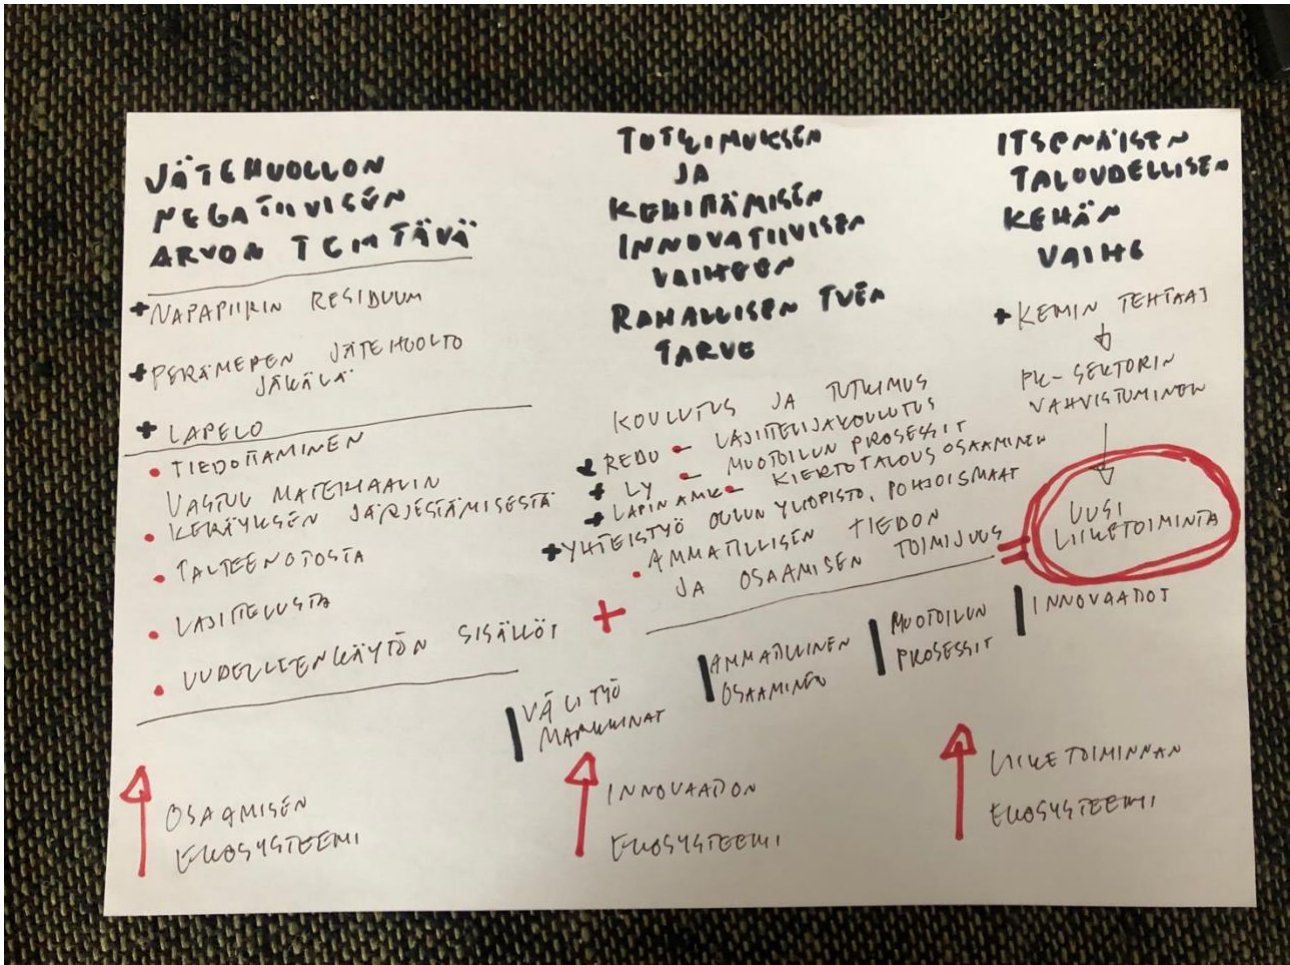 JÄTEHUOLLON
NEGATIIVISEN
ARVON TEHTÄVÄ
+ NAPAPIIRIN RESIDUUM
+ PERÄMEREN JÄTEHUOLTO
JÄKÄLÄ
+ LAPELO
• TIEDOTTAMINEN
VASTUU MATERIAALIN
• KERÄYKSEN JÄRJESTÄMISESTÄ
• TALTEENOTOSTA
• LAJITTELUSTA
• UUDELLEENKÄYTÖN SISÄLLÖT
OSAAMISEN
EKOSYSTEEMI
TUTKIMUKSEN
JA
KEHITTÄMISEN
INNOVATIIVISEN
VAIHEEN
RAHALLISEN TUEN
TARVE
KOULUTUS JA TUTKIMUS
+ REDU – LAJITTELIJAKOULUTUS
+ LY – MUOTOILUN PROSESSIT
+ LAPIN AMK – KIERTOTALOUS OSAAMINEN
+ YHTEISTYÖ OULUN YLIOPISTO, POHJOISMAAT
• AMMATILLISEN TIEDON
JA OSAAMISEN TOIMIJUUS
+
=
| VÄLITYÖ
MARKKINAT
| AMMATILLINEN
OSAAMINEN
| MUOTOILUN
PROSESSIT
| INNOVAATIOT
INNOVAATION
EKOSYSTEEMI
ITSENÄISEN
TALOUDELLISEN
KEHÄN
VAIHE
+ KEMIN TEHTAAT
PK-SEKTORIN
VAHVISTUMINEN
UUSI
LIIKETOIMINTA
LIIKETOIMINNAN
EKOSYSTEEMI